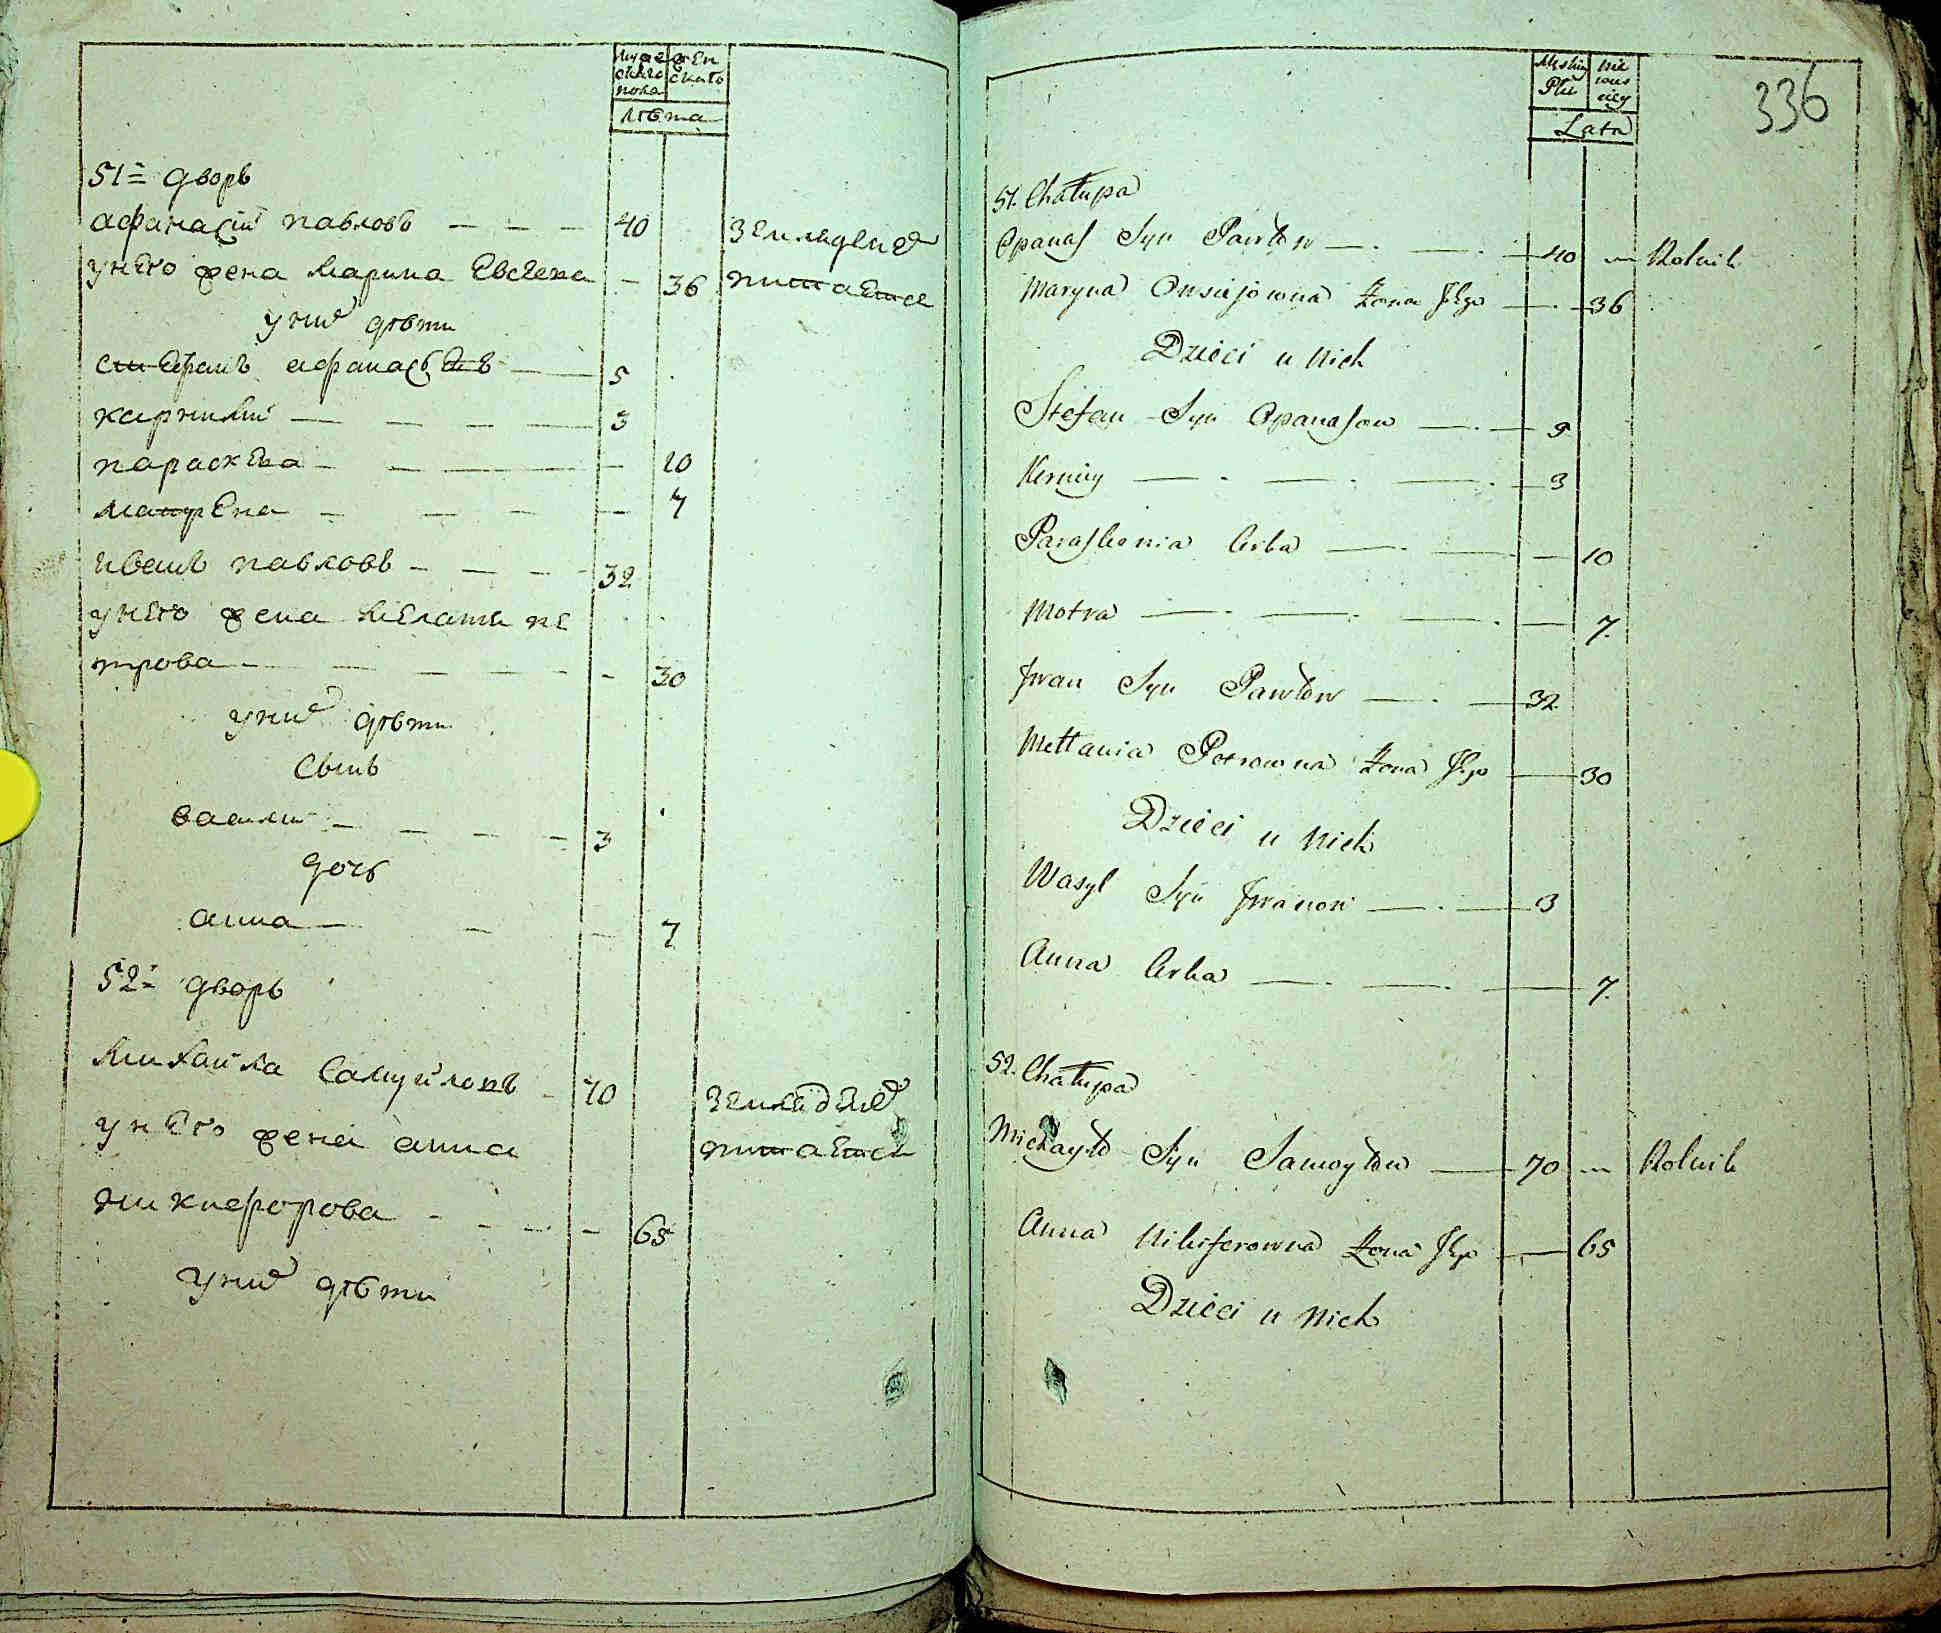 мужескаго пола
женскаго
лѣта
51= дворъ
афанасий павловъ — — — 40
земледелие
унего жена марина Евсеева — 36
питаетсе
уних дѣти
стефанъ афанасьевъ — 5
карнилий — — — — 3
парасквва — — — — 10
матрена — — — — 7
иванъ павловъ — — — 32
унего жена меланья пе
трова — — — — — 30
уних дѣти
сынъ
василий — — — — 3
дочь
анна — — — 7
52= дворъ
михайла самуйловъ — 70
земледелие
унего жена анна
питаетсе
никиефорова — — — — 65
уних дѣти
336
Męskiey Płci
niewiesciey
Lata
51. Chałupa
Opanas Syn Pawłow — . — . — 40 — Rolnik
Maryna Owsiejowna Żona Jego — . — 36
Dzieci u nich
Stefan Syn Opanasow — . — 5
Kerniey — . — . — . — 3
Paraskewia Corka — . — — 10
Motra — . — . — . — 7.
Jwan Syn Pawłow — . — 32
Mełłania Petrowna Żona Jego — 30
Dzieci u nich
Wasyl Syn Jwanow — . — 3
Anna Corka — . — . — 7.
52. Chałupa
Michayło Syn Samoyłow — 70 — Rolnik
Anna Nikiferowna Żona Jego — . — 65
Dzieci u nich